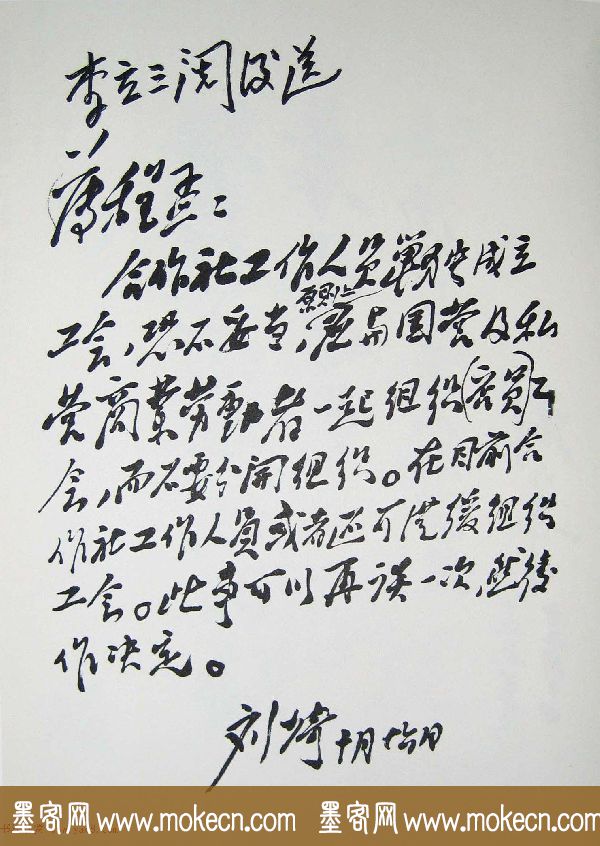 李立三阅后送
薄程孟：
合作社工作人员單独成立
原則上
工会，恐不妥当，应与国营及私
营商業劳動者一起组织（店员）工
会，而不要分開组织。在目前合
作社工作人员或者还可从缓组织
工会。此事可以再谈一次，然後
作决定。
刘少奇 十月廿六日
墨客网 www.mokecn.com 墨客网 www.mokecn.com